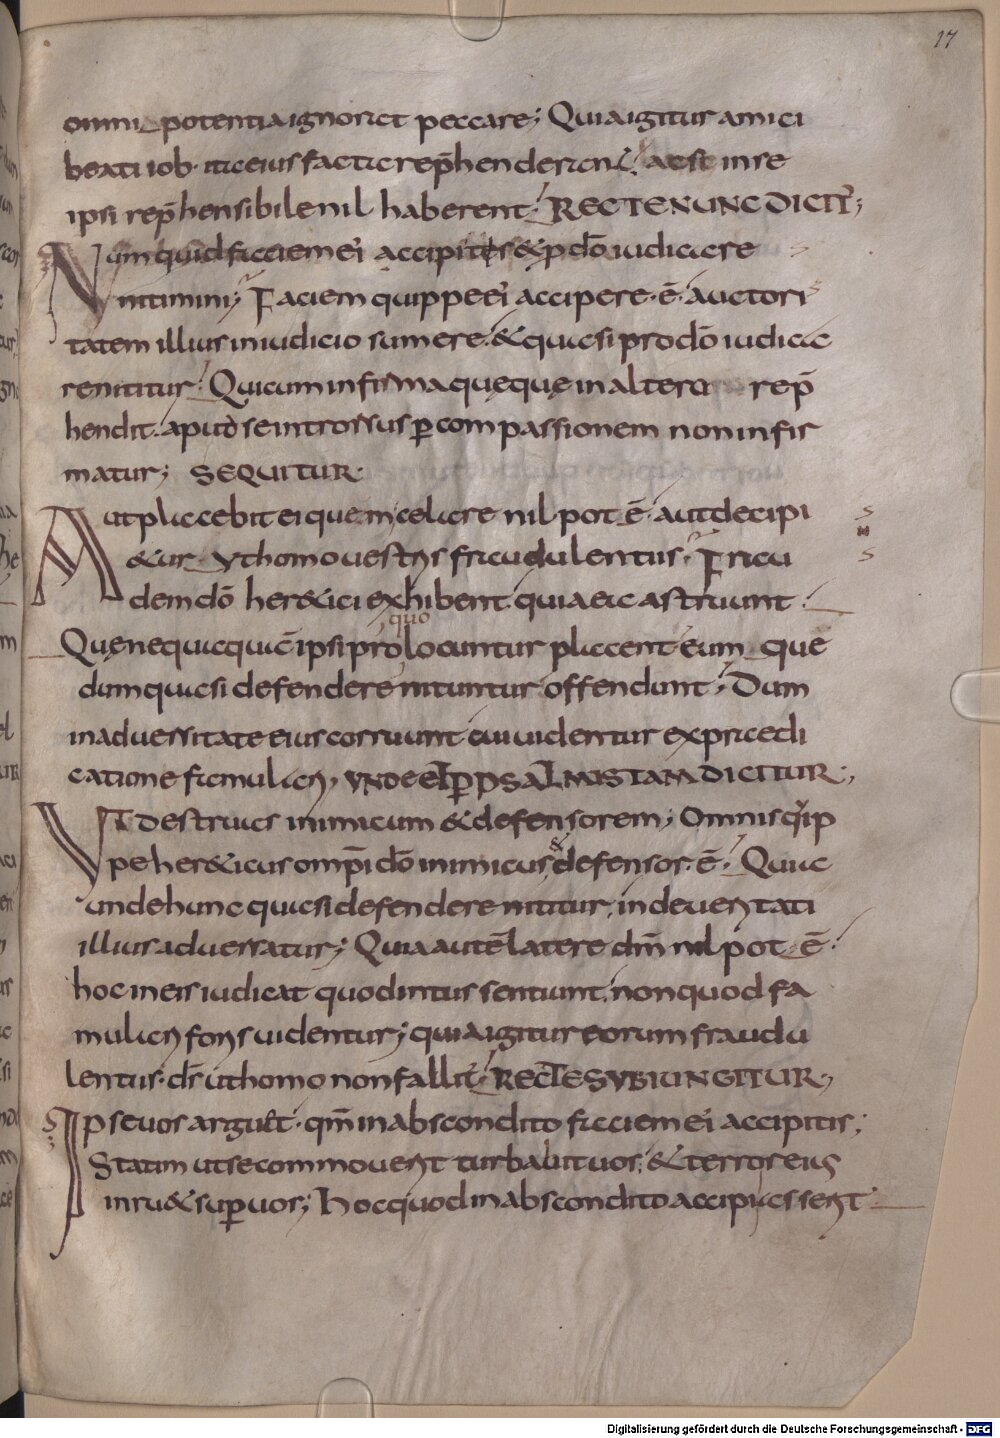 17
omnipotentia ignorat peccare; Quia igitur amici
beati iob ita eius facta reph̄enderunt, ac si in se
ipsi reph̄ensibile nil haberent; RECTE NUNC DICIT̄;
Numquid faciem ei accipitis & p dō iudicare
nitimini; Faciem quippe ei accipere ē auctori
tatem illius in iudicio sumere. & quasi pro dō iudica
re nititur; Qui cum infirma quęquę in altero rep̄
hendit. apud se introrsus p compassionem non infir
matur; SEQUITUR.
Aut placebit ei quem celare nil pot ē. aut decipi
&ur. Ut homo vestris fraudulentus. Frau
dem dō her&ici exhibent. quia ea astruunt.
quo
Quę nequaquā ipsi pro locuntur placent eum que
dum quasi defendere nituntur offendunt; Dum
in adversitate eius corruunt cui videntur ex predi
catione famulari, UNDE ET P PSALMISTAM DICITUR;
UT destruas inimicum & defensorem; Omnis q̄ip
pe her&icus omp̄i dō inimicus & defensor. ē. Quia
unde hunc quasi defendere nititur, inde veritati
illius adversatur; Quia autē latere dm̄ nil pot ē.
hoc in eis iudicat quod intus sentiunt, non quod fa
mulari foris videntur; quia igitur eorum fraudu
lentus dr̄ ut homo non fallit; RECTE SUBIUNGITUR;
Ipse vos arguet. qm̄ in abscondito faciem ei accipitis;
Statim ut se commoverit turbabit vos, & terror eius
inru& sup vos; Hoc quod in abscondito accipi essent
Digitalisierung gefördert durch die Deutsche Forschungsgemeinschaft - DFG